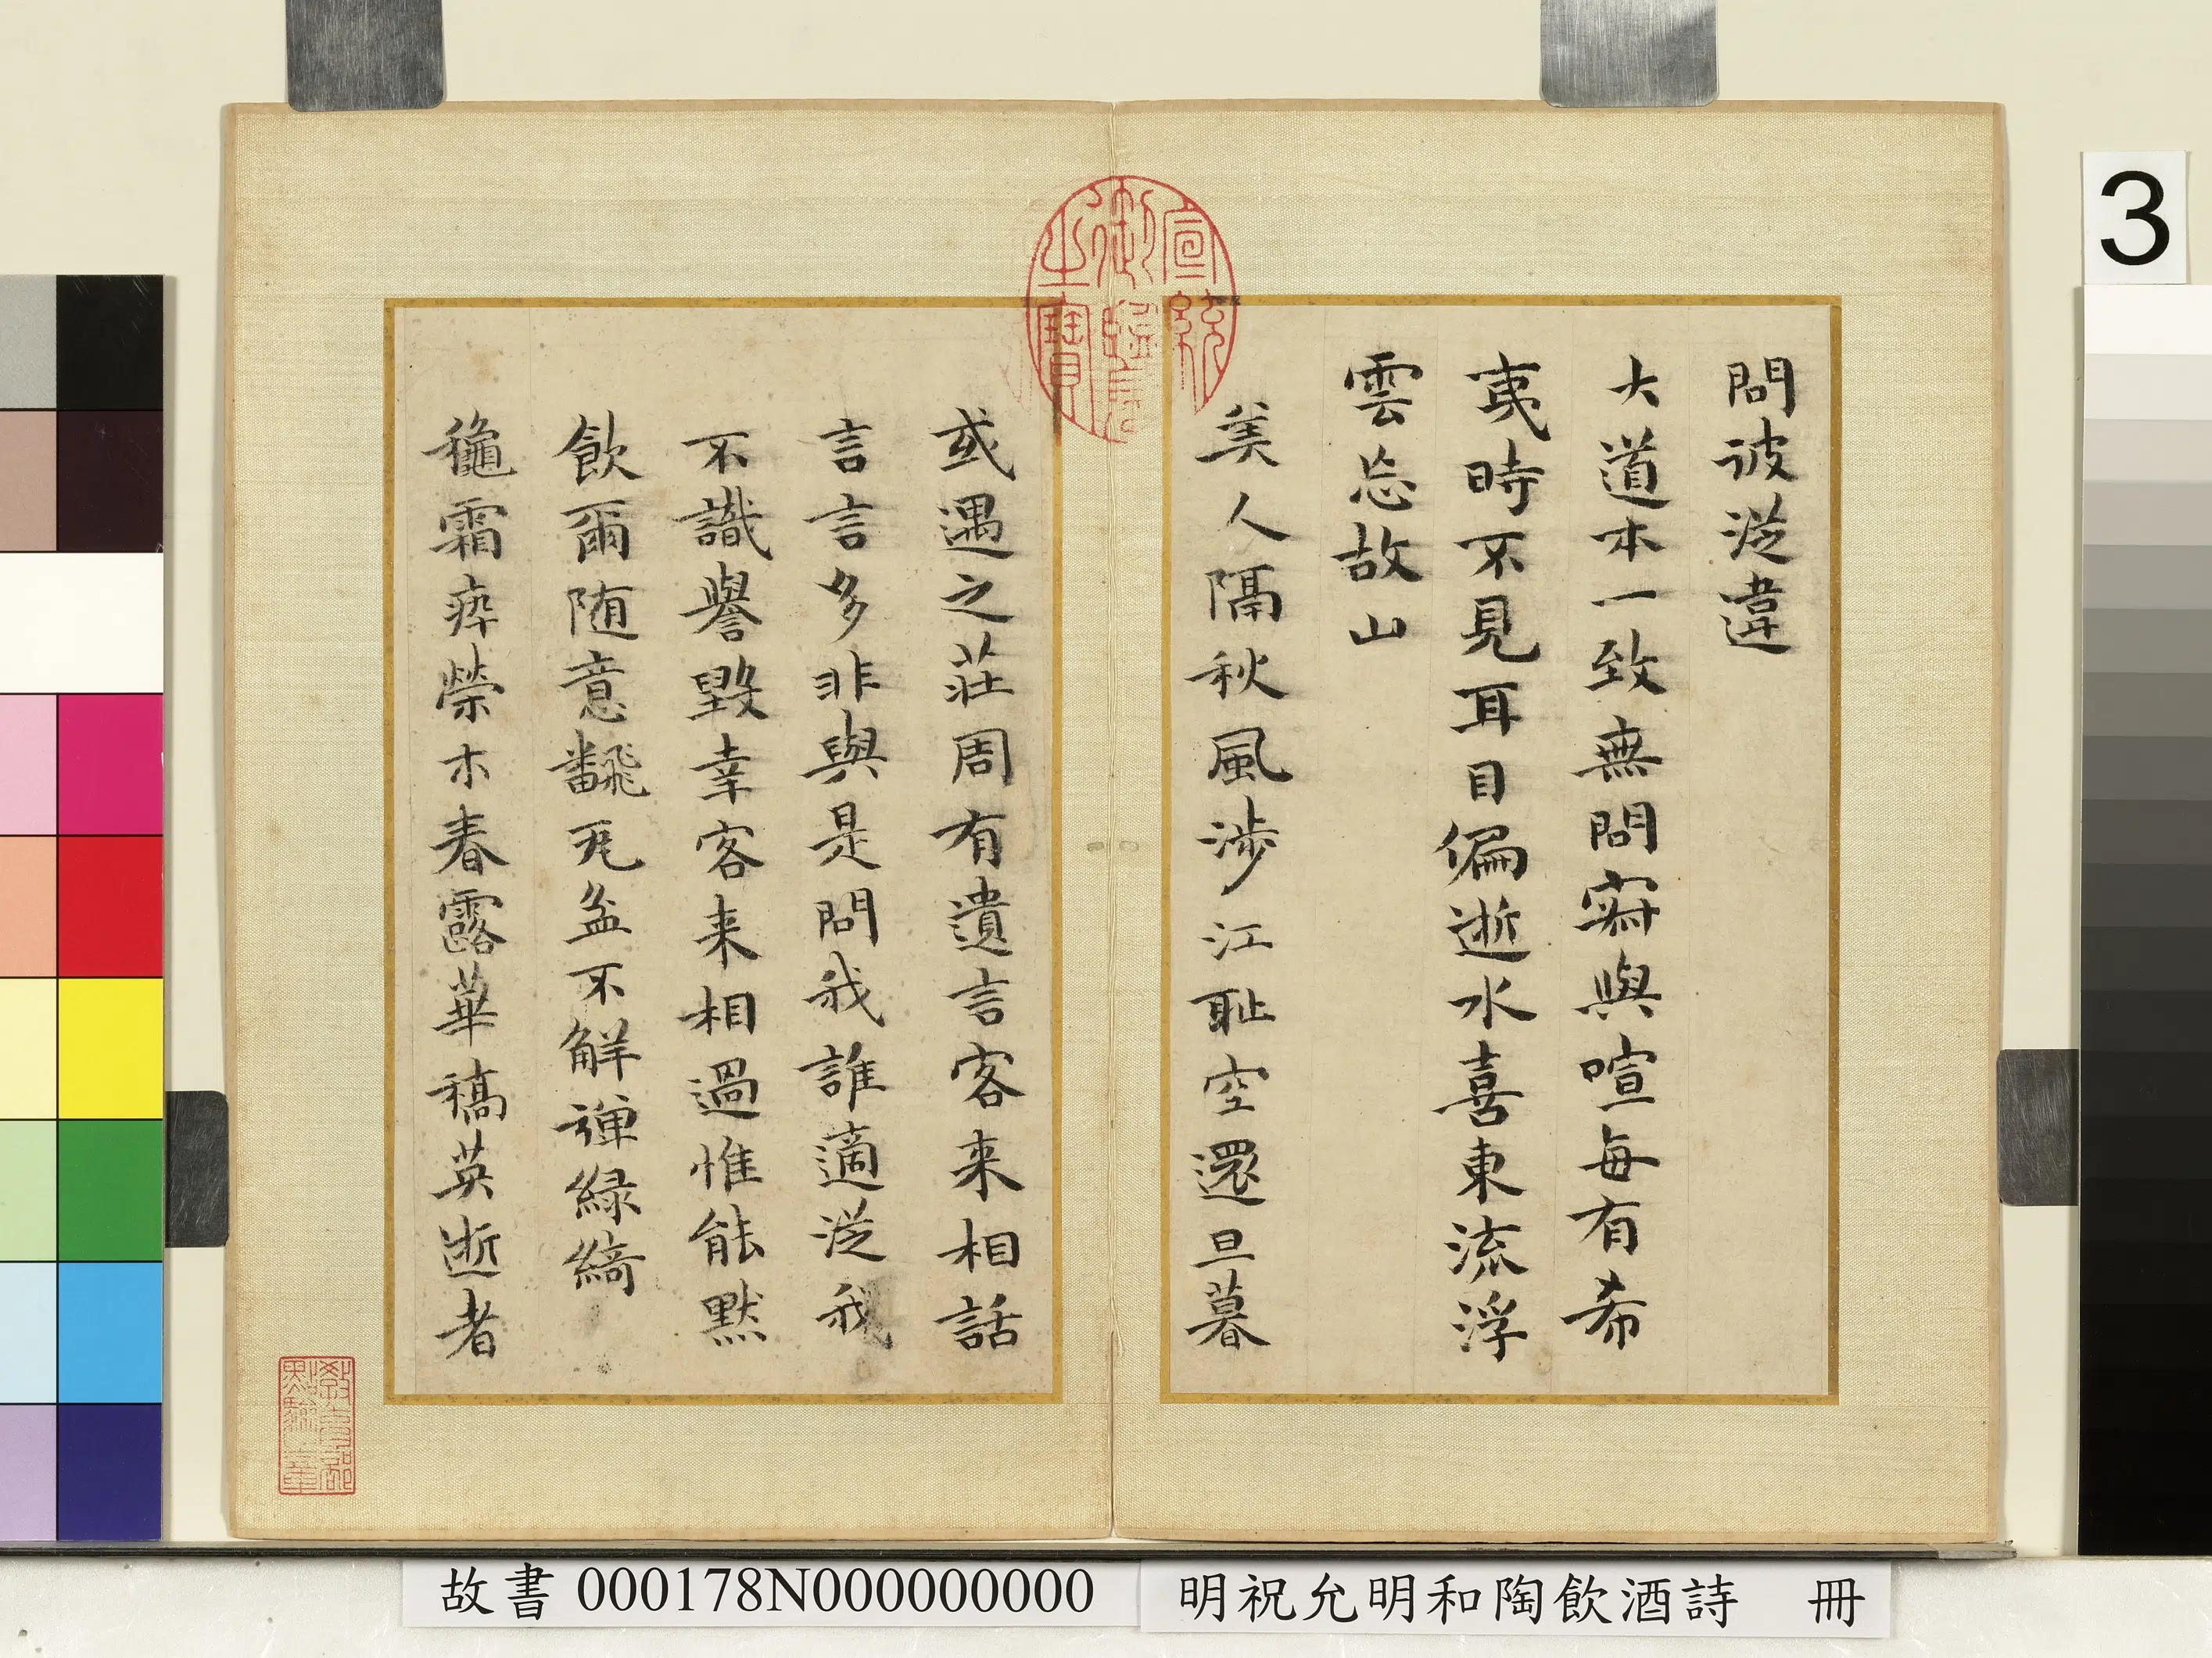 問彼從違
大道本一致無問寂與喧每有希
夷時不見耳目偏逝水喜東流浮
雲忘故山
美人隔秋風涉江耻空還旦暮
或遇之莊周有遺言客來相話
言言多非與是問我誰適從我
不識譽毀幸客来相過惟能默
飲爾随意飜瓦盆不解禅緑綺
龝霜瘁榮木春露華稿英逝者
宣統御覽之寶
教育部點驗之章
3
故書 000178N000000000
明祝允明和陶飲酒詩 冊